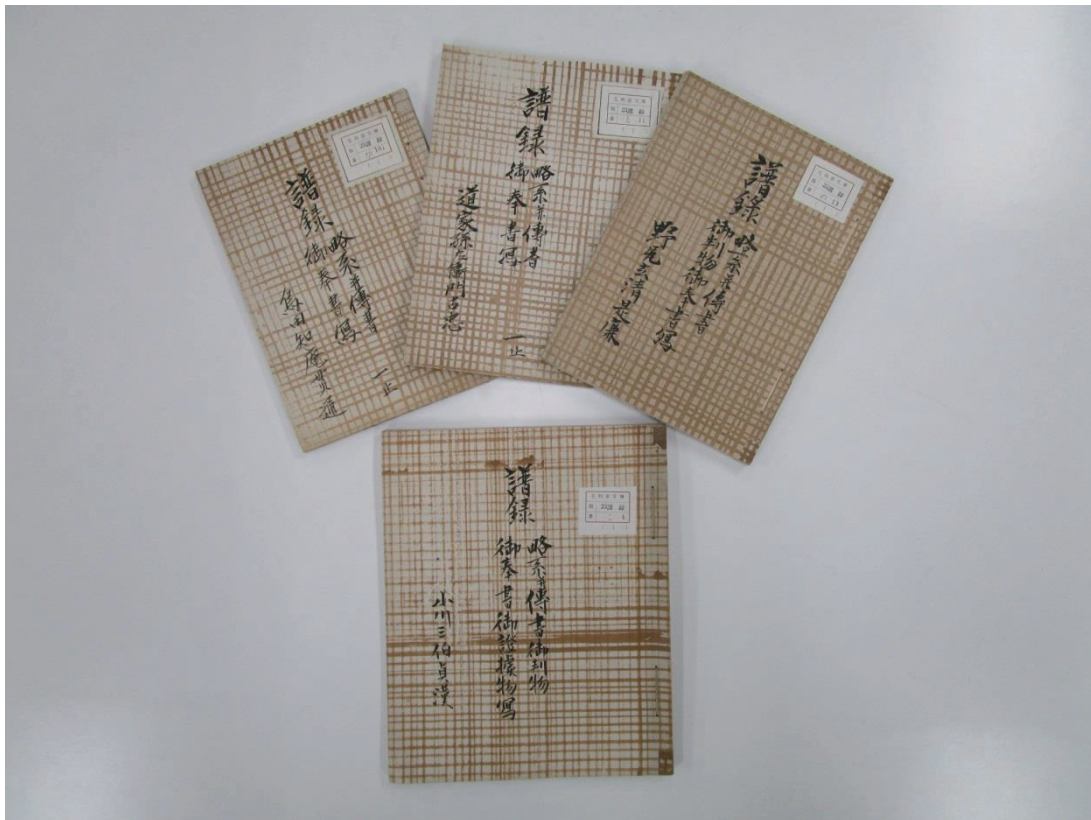 譜録
略系并傳書
御奉書寫
一止
譜録
略系并傳書
御奉書寫
道家孫左衛門古忠
一止
譜録
略系并傳書
御判物御奉書寫
野尾玄清是康
譜録
略系并傳書御判物
御奉書御證據物寫
小川三伯貞漢